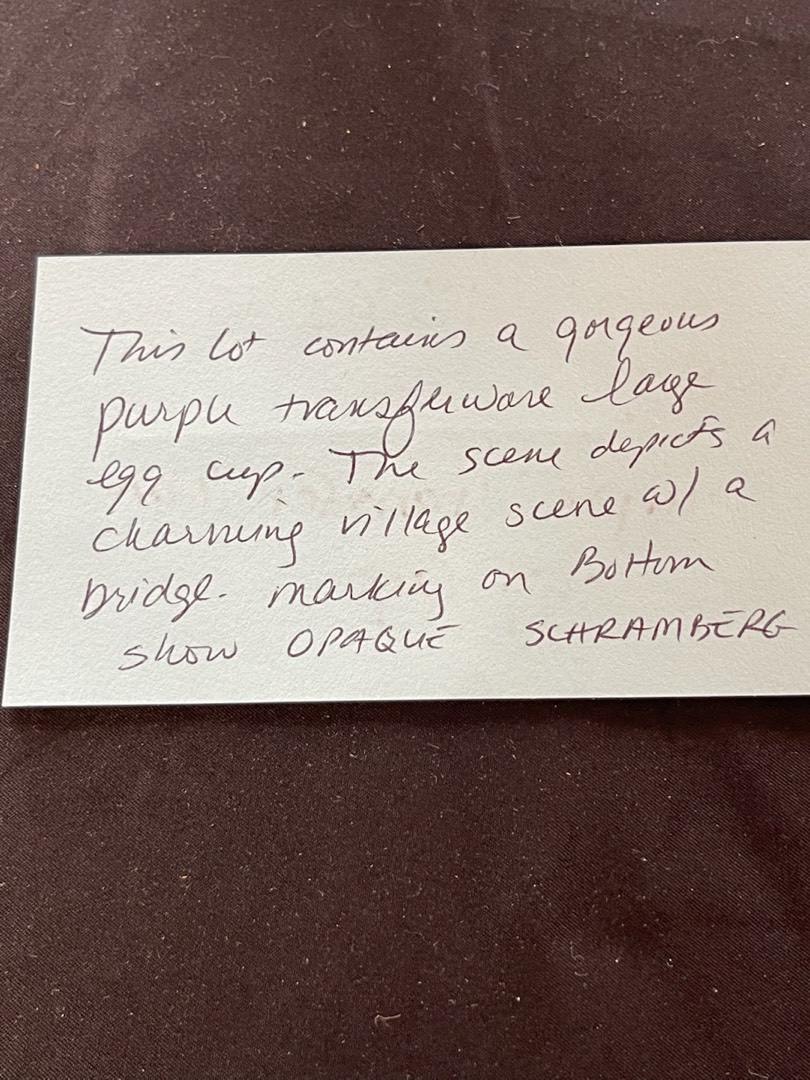 This lot contains a gorgeous
purple transferware large
egg cup. The scene depicts a
charming village scene w/ a
bridge. marking on Bottom
show OPAQUE SCHRAMBERG